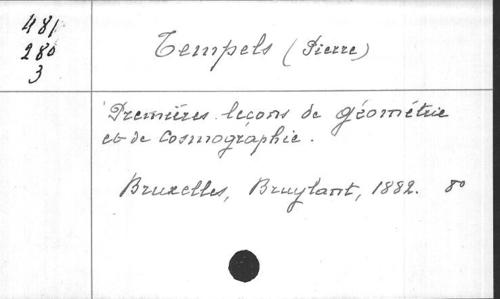 481
280
3
Tempels (Pierre)
Premières leçons de géométrie
et de Cosmographie.
Bruxelles, Bruylant, 1882. 8º